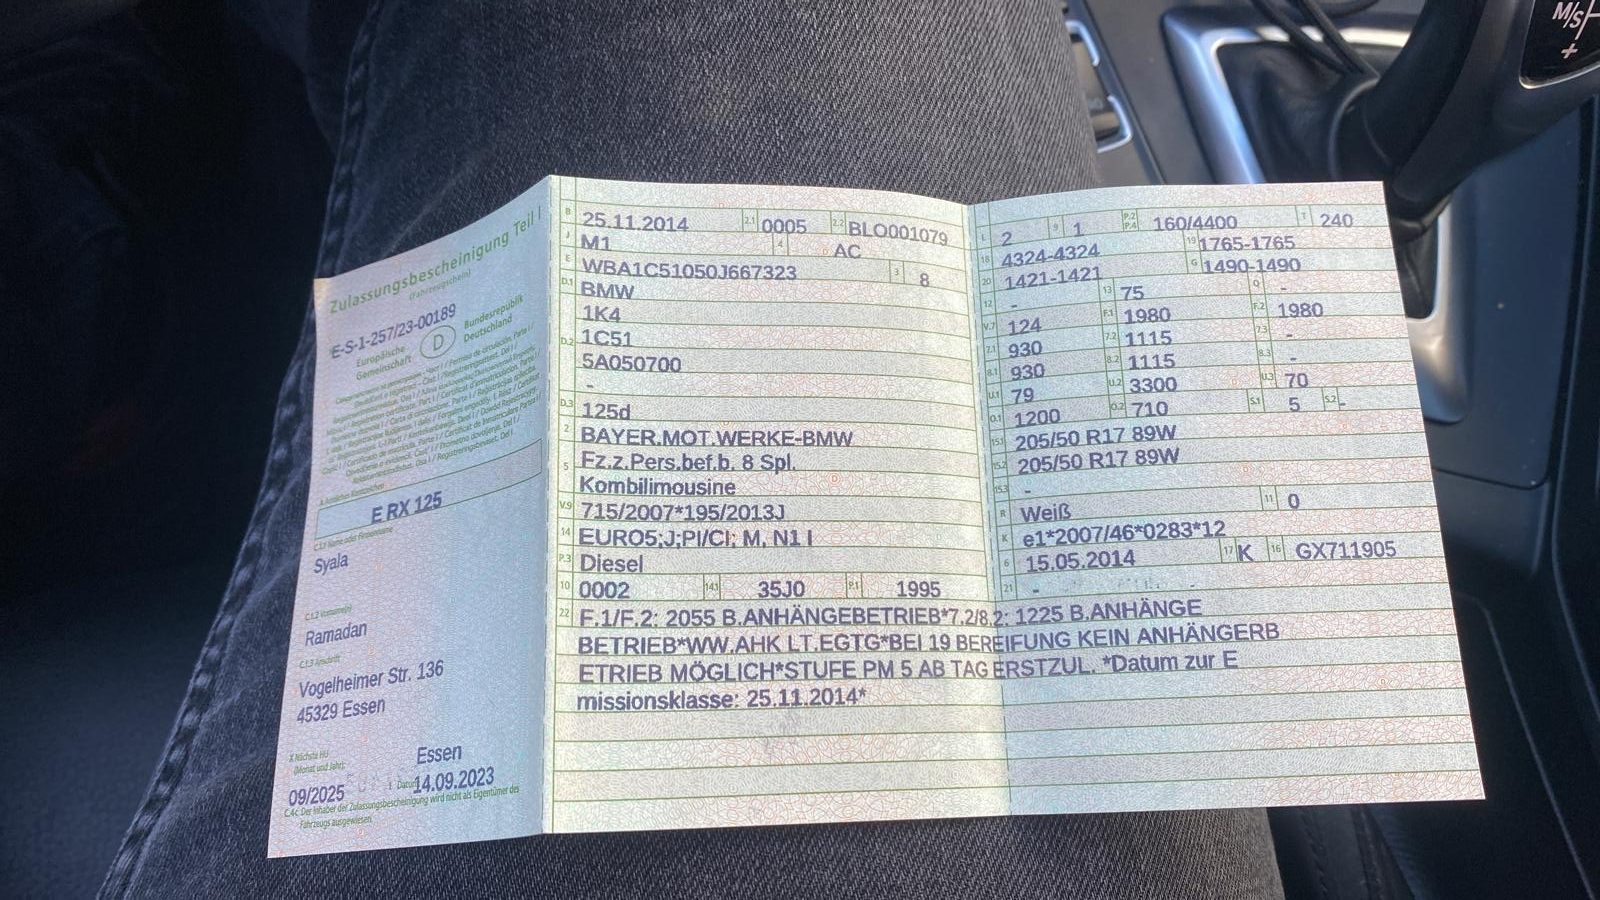 Zulassungsbescheinigung Teil I
(Fahrzeugschein)
E-S-1-257/23-00189
Europäische Gemeinschaft
D
Bundesrepublik Deutschland
E RX 125
C.1.1 Name oder Firmenname
Syala
C.1.2 Vorname(n)
Ramadan
C.1.3 Anschrift
Vogelheimer Str. 136
45329 Essen
X Nächste HU
(Monat und Jahr)
09/2025
Essen
I Datum 14.09.2023
C.4c Der Inhaber der Zulassungsbescheinigung wird nicht als Eigentümer des
Fahrzeugs ausgewiesen.
B 25.11.2014 2.1 0005 2.2 BLO001079
J M1 4 AC
E WBA1C51050J667323 3 8
D.1 BMW
1K4
D.2 1C51
5A050700
-
D.3 125d
2 BAYER.MOT.WERKE-BMW
5 Fz.z.Pers.bef.b. 8 Spl.
Kombilimousine
V.9 715/2007*195/2013J
14 EURO5;J;PI/CI; M, N1 I
P.3 Diesel
10 0002 14.1 35J0 P.1 1995
22 F.1/F.2: 2055 B.ANHÄNGEBETRIEB*7.2/8.2: 1225 B.ANHÄNGE
BETRIEB*WW.AHK LT.EGTG*BEI 19 BEREIFUNG KEIN ANHÄNGERB
ETRIEB MÖGLICH*STUFE PM 5 AB TAG ERSTZUL. *Datum zur E
missionsklasse: 25.11.2014*
L 2 9 1 P.2 P.4 160/4400 T 240
18 4324-4324 19 1765-1765
20 1421-1421 G 1490-1490
12 - 13 75 Q -
V.7 124 F.1 1980 F.2 1980
7.1 930 7.2 1115 7.3 -
8.1 930 8.2 1115 8.3 -
U.1 79 U.2 3300 U.3 70
O.1 1200 O.2 710 S.1 5 S.2 -
15.1 205/50 R17 89W
15.2 205/50 R17 89W
15.3 -
R Weiß 11 0
K e1*2007/46*0283*12
6 15.05.2014 17 K 16 GX711905
21 -
M/S
+